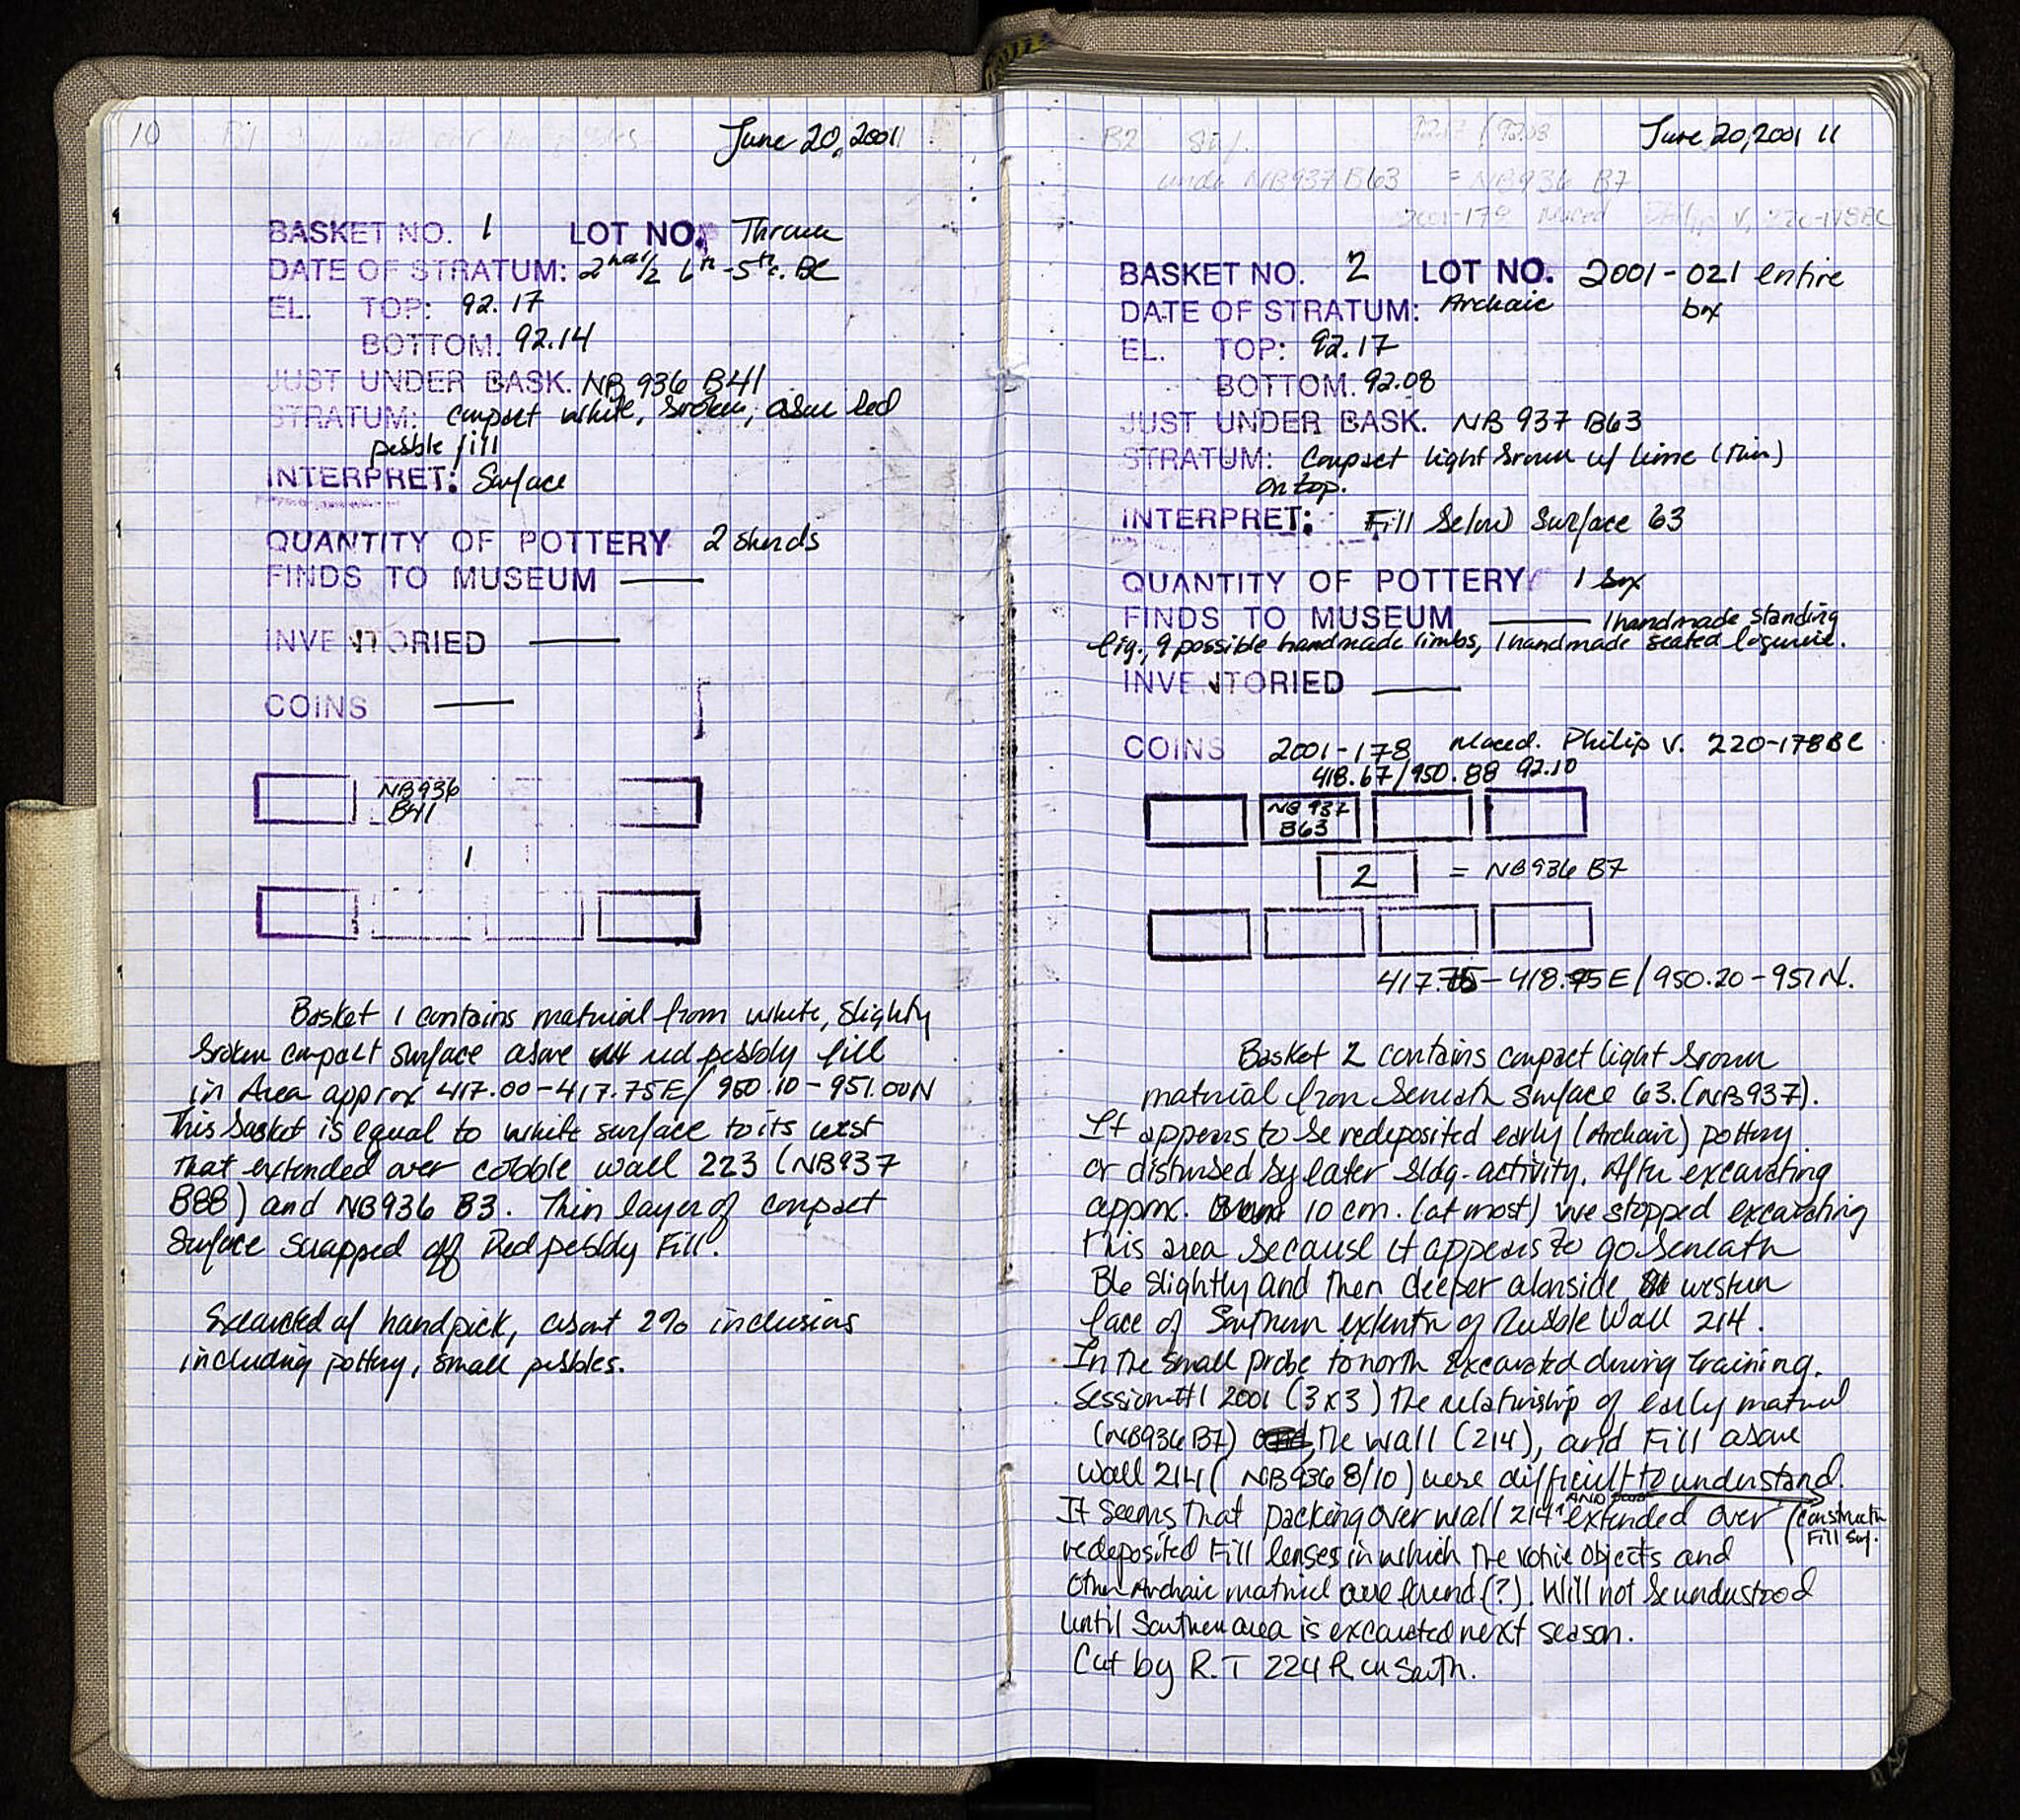 10
June 20, 2001
BASKET NO. 1 LOT NO. Thrown
DATE OF STRATUM: 2nd half 6th-5th c. BC
EL. TOP: 92.17
BOTTOM. 92.14
JUST UNDER BASK. NB 936 B41
STRATUM: compact white, broken, above red
pebble fill
INTERPRET: Surface
QUANTITY OF POTTERY 2 sherds
FINDS TO MUSEUM —
INVENTORIED —
COINS —
NB936
B41
1
Basket 1 contains material from white, slighty
broken compact surface above red pebbly fill
in Area approx 417.00-417.75E/ 950.10-951.00N
This basket is equal to white surface to its west
that extended over cobble wall 223 (NB937
B88) and NB936 B3. Thin layer of compact
Surface scrapped off Red pebbly Fill.
Excavated w/ handpick, about 2% inclusions
including pottery, small pebbles.
June 20, 2001 11
B2
under NB937 B63 = NB936 B7
2001-179 Maced Philip V, 220-178BC
BASKET NO. 2 LOT NO. 2001-021 entire
box
DATE OF STRATUM: Archaic
EL. TOP: 92.17
BOTTOM. 92.08
JUST UNDER BASK. NB 937 B63
STRATUM: Compact light brown w/ lime (thin)
on top.
INTERPRET: Fill below surface 63
QUANTITY OF POTTERY 1 box
FINDS TO MUSEUM — 1 handmade standing
fig., 9 possible handmade limbs, 1 handmade seated figurine.
INVENTORIED —
COINS 2001-178 Maced. Philip V. 220-178BC
418.67/950.88 92.10
NB 937
B63
2 = NB936 B7
417.75-418.95E/950.20-951N.
Basket 2 contains compact light brown
material from beneath surface 63. (NB937).
It appears to be redeposited early (Archaic) pottery
or disturbed by later bldg. activity. After excavating
approx. 10 cm. (at most) we stopped excavating
this area because it appears to go beneath
B6 slightly and then deeper alonside western
face of Southern extent of Rubble Wall 214.
In the small probe to north excavated during training
Session #1 2001 (3x3) the relationship of early material
(NB936 B7), the wall (214), and Fill above
wall 214 ( NB936 8/10) were difficult to understand.
It seems that packing over wall 214 AND extended over (construction
Fill
redeposited Fill lenses in which the votive objects and
other Archaic material are found (?). Will not be understood
until Southern area is excavated next season.
Cut by R.T 224 R on South.